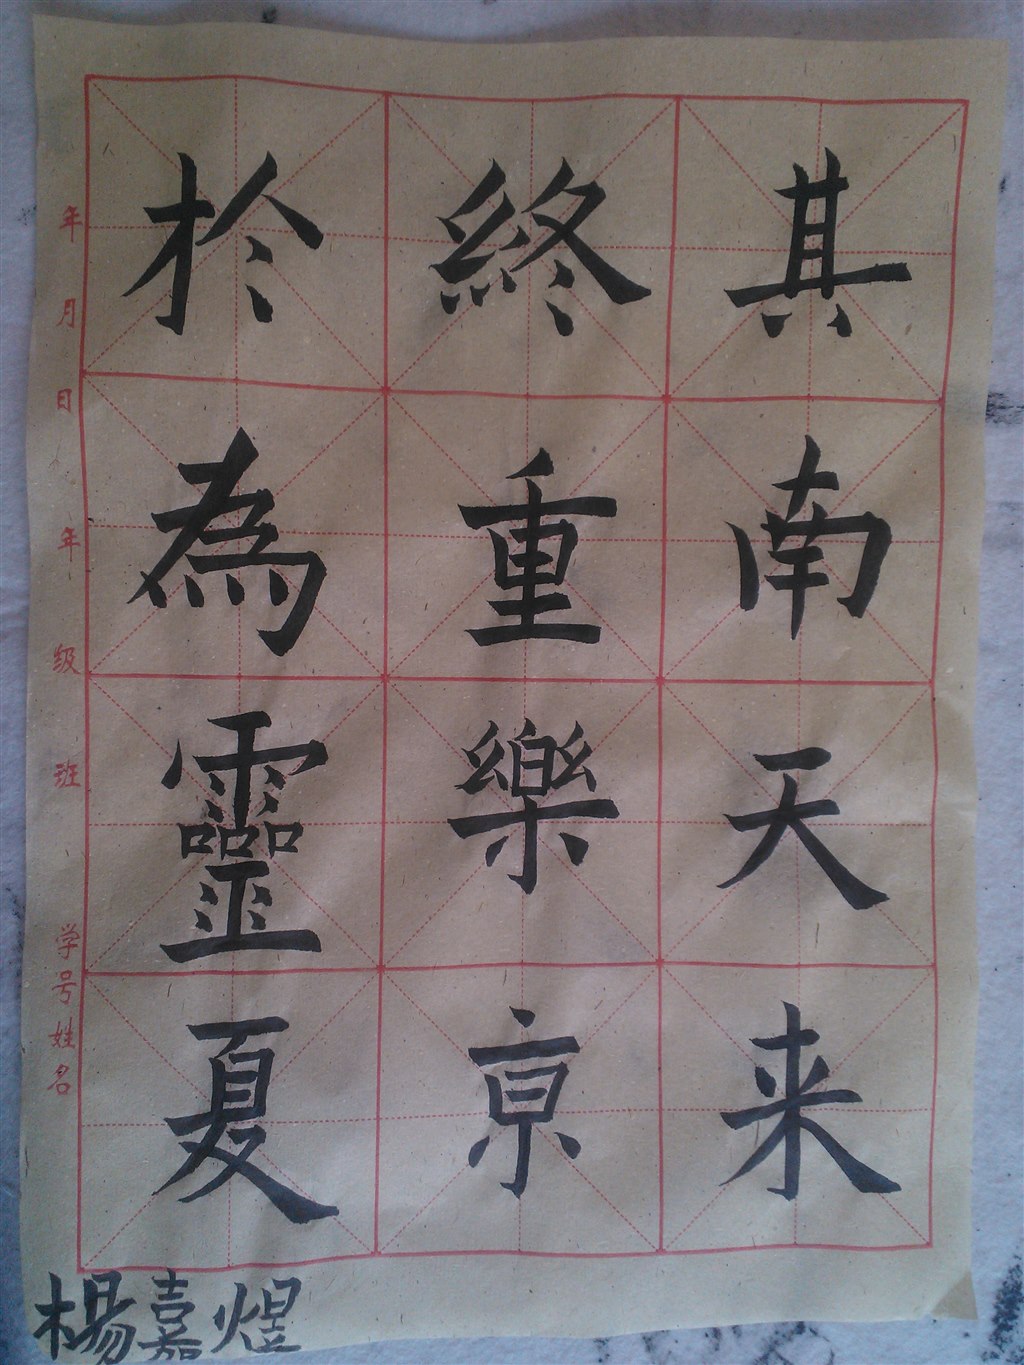 其南天来
終重樂京
於為靈夏
年月日
年级班
学号姓名
楊嘉煜